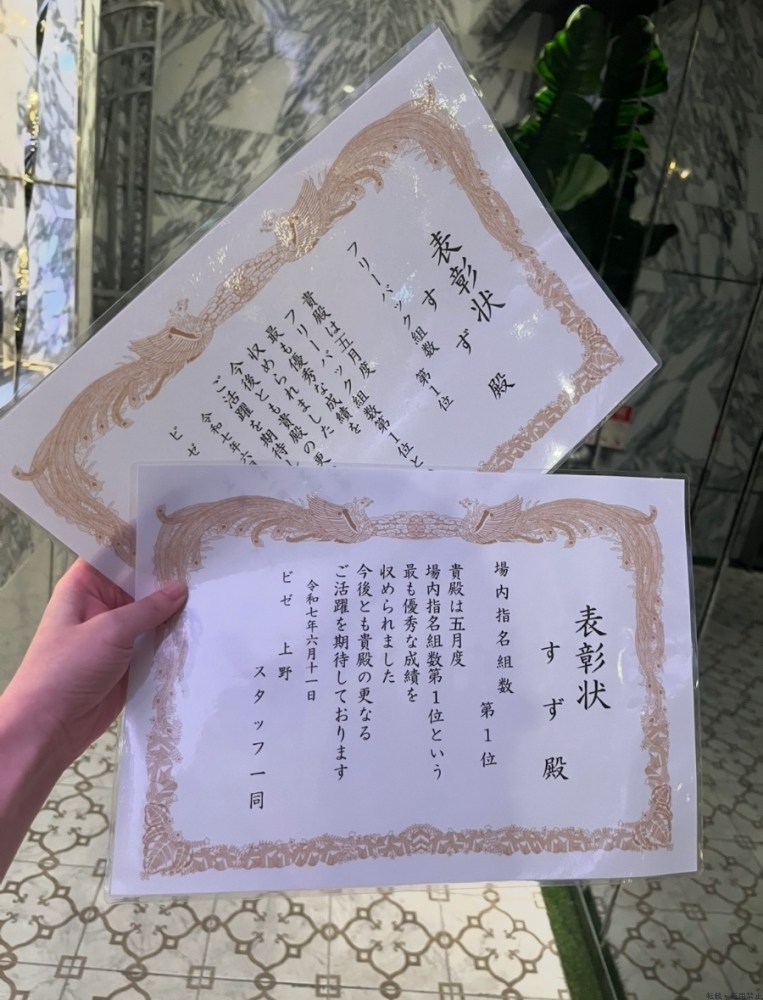 表彰状
すず 殿
フリーバック組数 第1位
貴殿は五月度
フリーバック組数第1位と
最も優秀な成績を
収められました
今後とも貴殿の更
ご活躍を期待し
令和七年六
ビゼ
表彰状
すず 殿
場内指名組数 第1位
貴殿は五月度
場内指名組数第1位という
最も優秀な成績を
収められました
今後とも貴殿の更なる
ご活躍を期待しております
令和七年六月十一日
ビゼ 上野
スタッフ一同